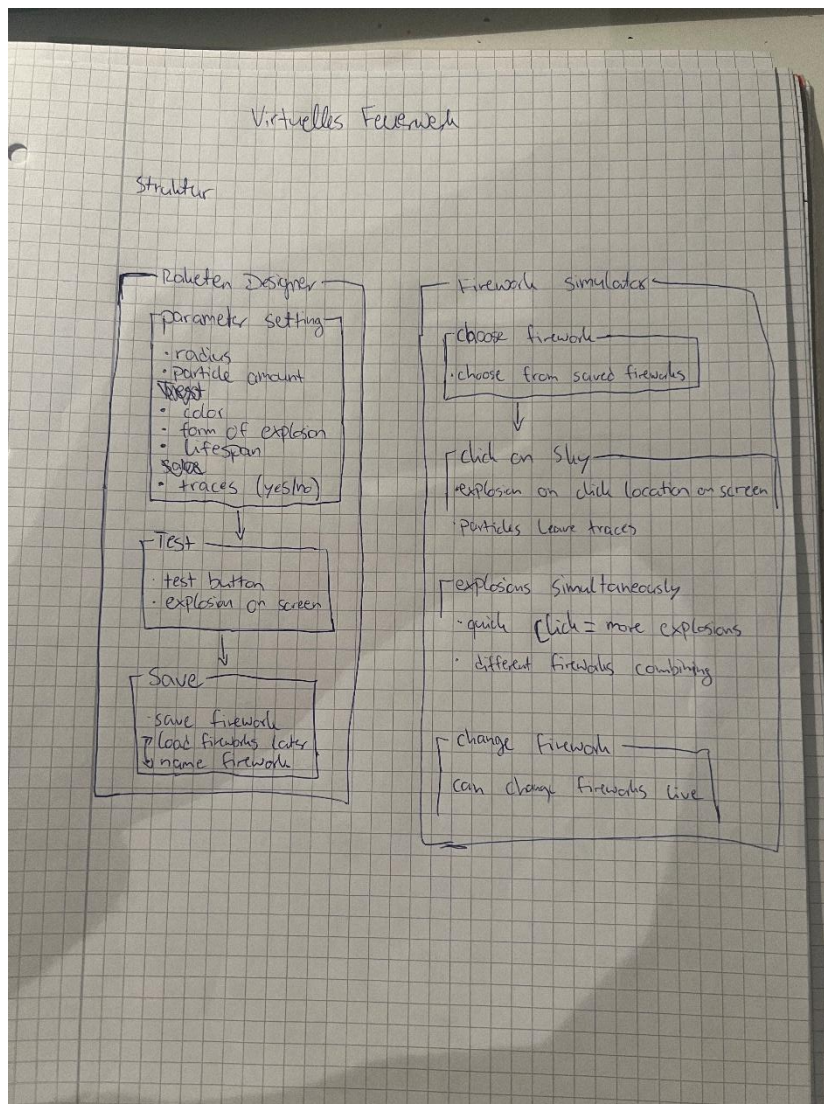 Virtuelles Feuerwerk
Struktur
Raketen Designer
parameter setting
· radius
· particle amount
· color
· form of explosion
· lifespan
· traces (yes/no)
Test
· test button
· explosion on screen
Save
· save firework
load fireworks later
name firework
Firework simulator
choose firework
· choose from saved fireworks
click on sky
· explosion on click location on screen
· particles leave traces
explosions simultaneously
· quick click = more explosions
· different fireworks combining
change firework
can change fireworks live